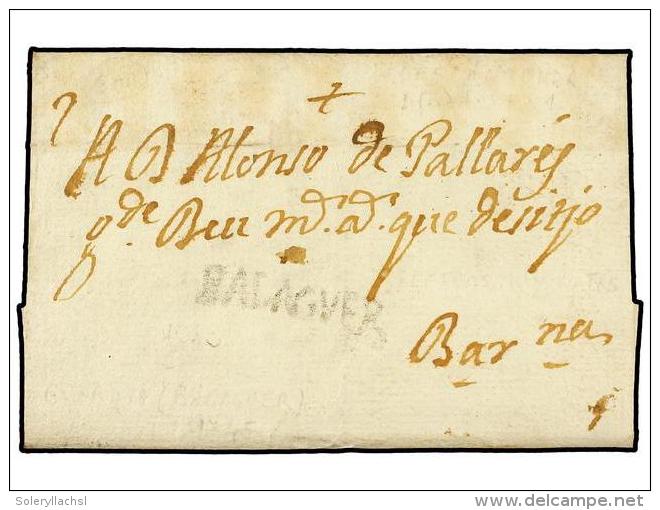 +
A Dn Alonso de Pallarés
gde md. ad. que desirjo
BALAGUER
Barna
Soleryllachsl
© delcampe.net